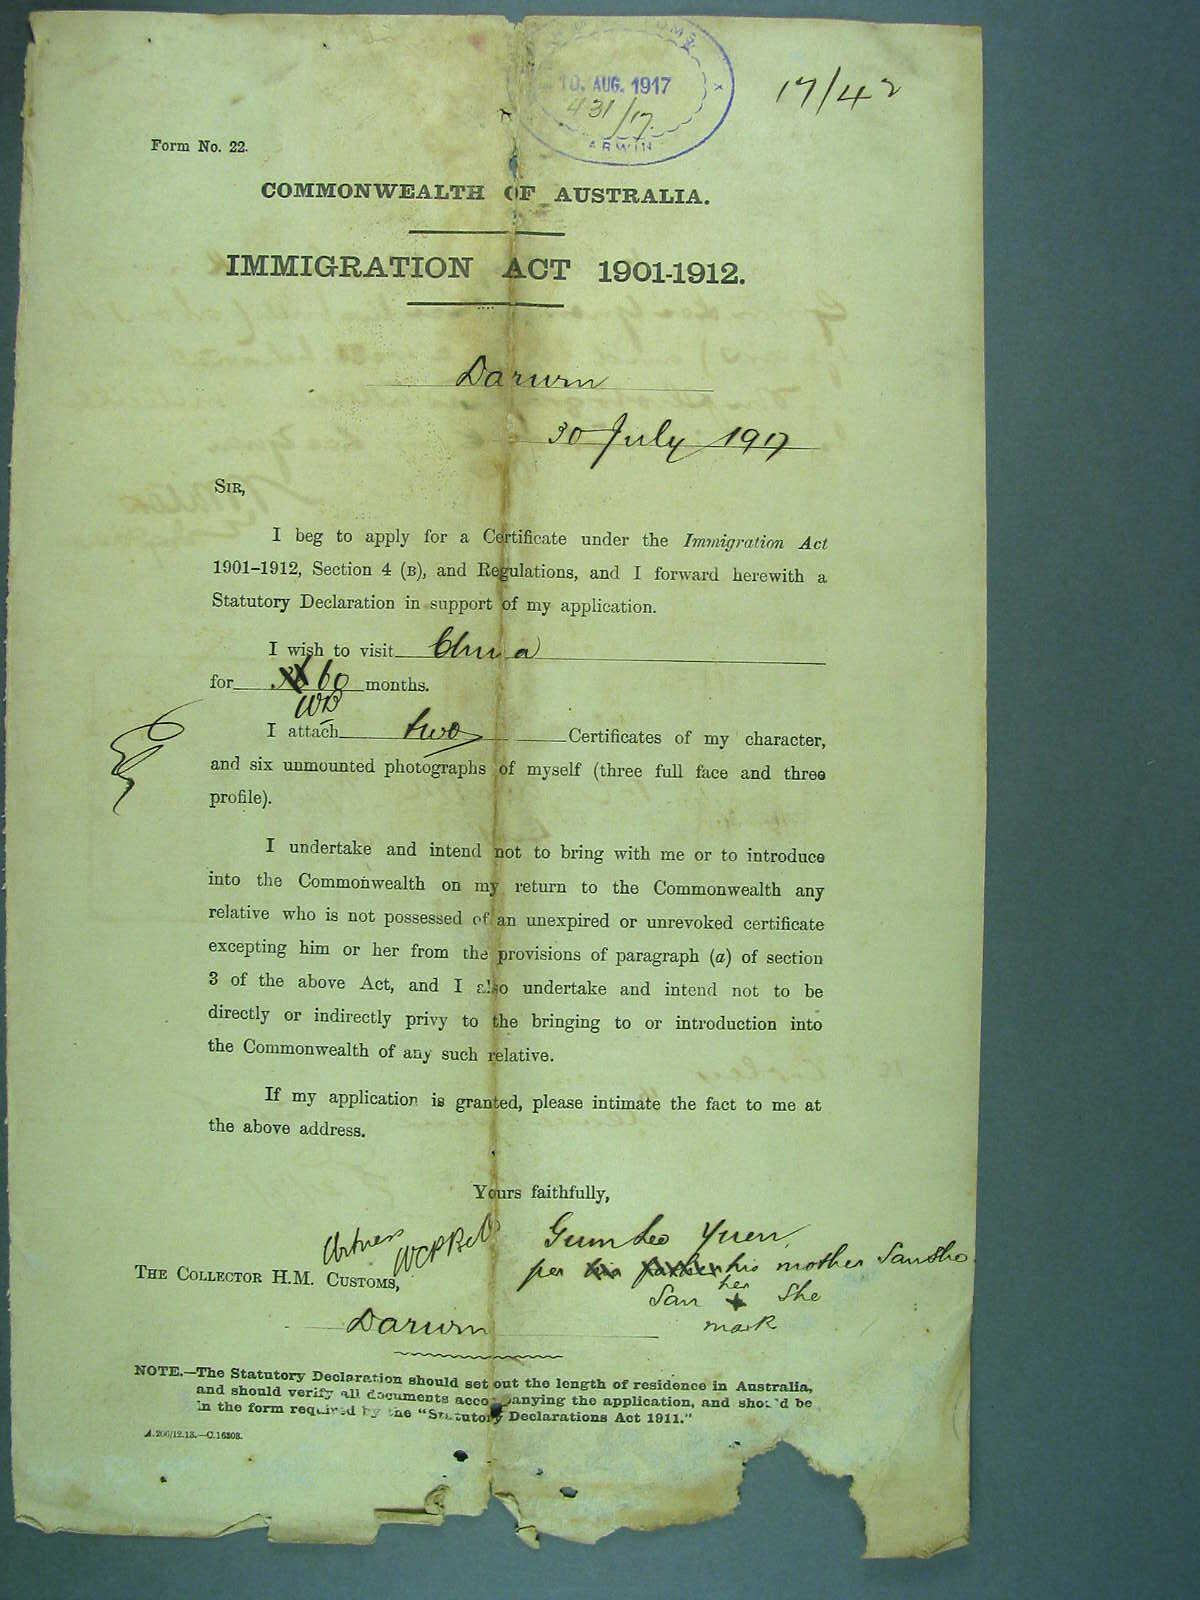 17/42
10. AUG. 1917
431/17.
ARWIN
Form No. 22.
COMMONWEALTH OF AUSTRALIA.
IMMIGRATION ACT 1901-1912.
Darwin
30 July 1917
SIR,
I beg to apply for a Certificate under the Immigration Act
1901-1912, Section 4 (B), and Regulations, and I forward herewith a
Statutory Declaration in support of my application.
I wish to visit China
for 60 months.
WB
I attach two Certificates of my character,
and six unmounted photographs of myself (three full face and three
profile).
I undertake and intend not to bring with me or to introduce
into the Commonwealth on my return to the Commonwealth any
relative who is not possessed of an unexpired or unrevoked certificate
excepting him or her from the provisions of paragraph (a) of section
3 of the above Act, and I also undertake and intend not to be
directly or indirectly privy to the bringing to or introduction into
the Commonwealth of any such relative.
If my application is granted, please intimate the fact to me at
the above address.
Yours faithfully,
Gum Leo Yuen
per his father his mother San She
San her + She
mark
Witness
THE COLLECTOR H.M. CUSTOMS,
Darwin
NOTE.—The Statutory Declaration should set out the length of residence in Australia,
and should verify all documents accompanying the application, and should be
in the form required by the "Statutory Declarations Act 1911."
A.206/12.13.—C.16308.